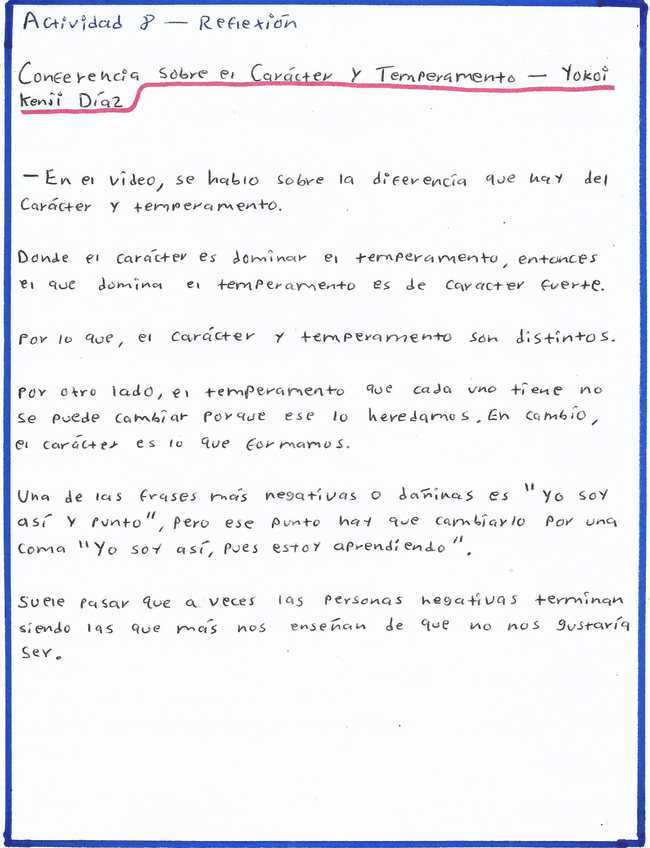 Actividad 8 — Reflexión
Conferencia sobre el Carácter y Temperamento — Yokoi
Kenji Díaz
— En el vídeo, se hablo sobre la diferencía que hay del
Carácter y temperamento.
Donde el carácter es dominar el temperamento, entonces
el que domina el temperamento es de caracter fuerte.
Por lo que, el carácter y temperamento son distintos.
Por otro lado, el temperamento que cada uno tiene no
se puede cambiar porque ese lo heredamos. En cambio,
el carácter es lo que formamos.
Una de las frases más negativas o dañinas es "Yo soy
así y punto", pero ese punto hay que cambiarlo por una
coma "Yo soy así, pues estoy aprendiendo".
Suele pasar que a veces las personas negativas terminan
siendo las que más nos enseñan de que no nos gustaría
ser.